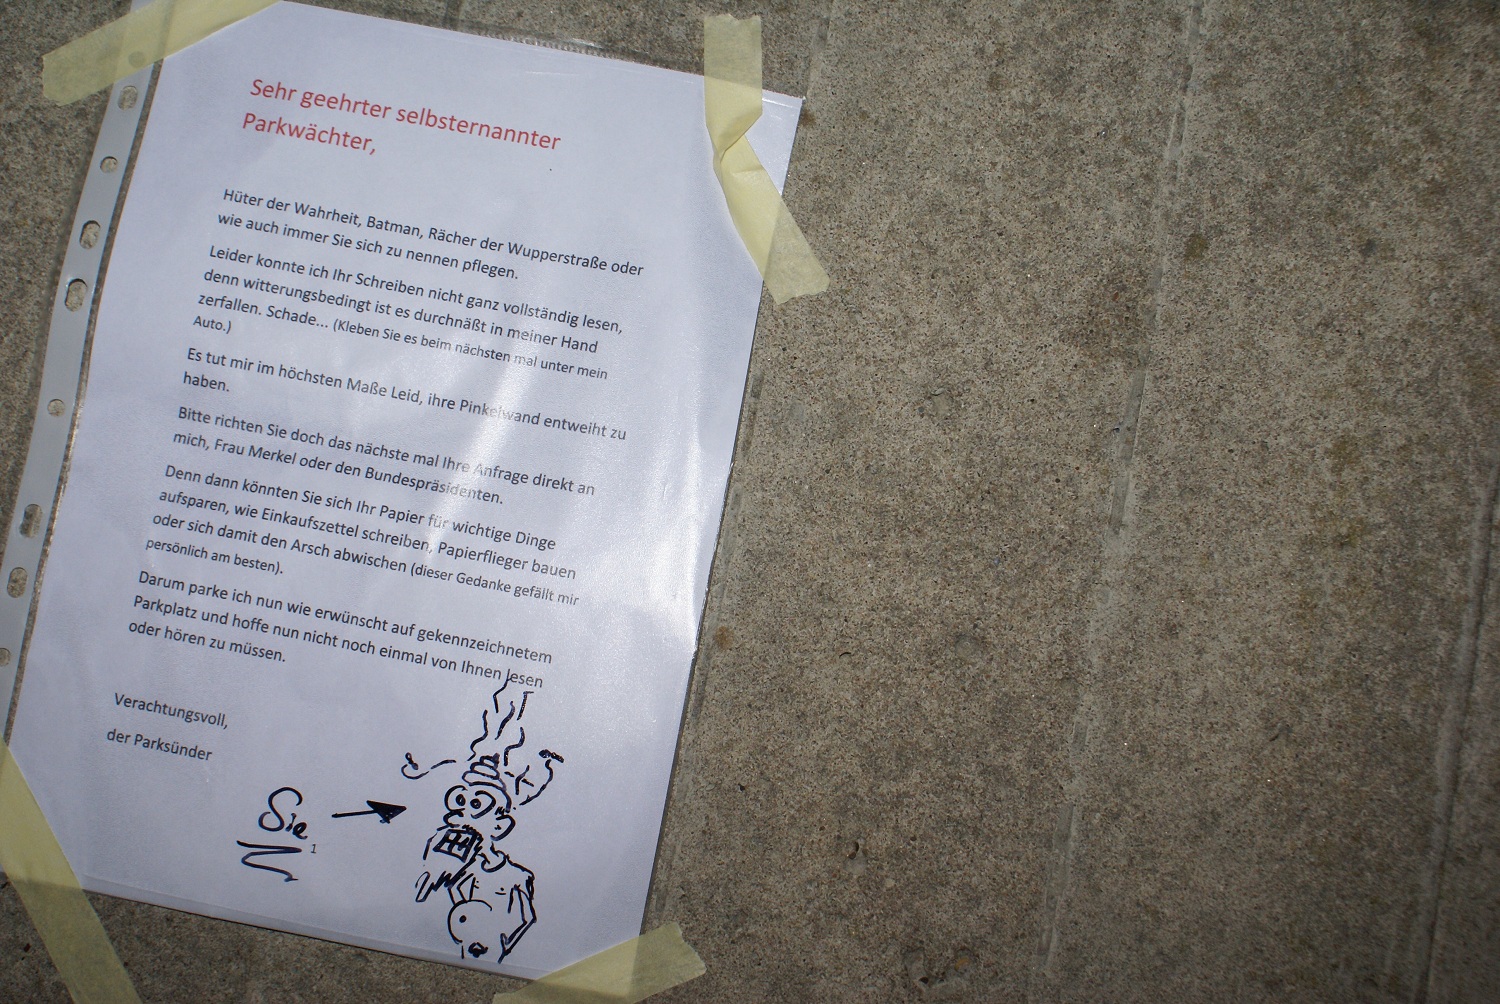 Sehr geehrter selbsternannter
Parkwächter,
Hüter der Wahrheit, Batman, Rächer der Wupperstraße oder
wie auch immer Sie sich zu nennen pflegen.
Leider konnte ich Ihr Schreiben nicht ganz vollständig lesen,
denn witterungsbedingt ist es durchnäßt in meiner Hand
zerfallen. Schade... (Kleben Sie es beim nächsten mal unter mein
Auto.)
Es tut mir im höchsten Maße Leid, ihre Pinkelwand entweiht zu
haben.
Bitte richten Sie doch das nächste mal Ihre Anfrage direkt an
mich, Frau Merkel oder den Bundespräsidenten.
Denn dann könnten Sie sich Ihr Papier für wichtige Dinge
aufsparen, wie Einkaufszettel schreiben, Papierflieger bauen
oder sich damit den Arsch abwischen (dieser Gedanke gefällt mir
persönlich am besten).
Darum parke ich nun wie erwünscht auf gekennzeichnetem
Parkplatz und hoffe nun nicht noch einmal von Ihnen lesen
oder hören zu müssen.
Verachtungsvoll,
der Parksünder
Sie
1